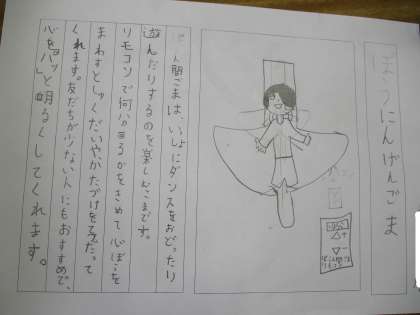 うにんげんごま
人間ごまは、いっしょにダンスをおどったり
遊んだりするのを楽しむこまです。
リモコンで何分回るかをきめて心ぼうを
まわすとしゅくだいや、かたづけを手つだって
くれます。友だちが少ない人にもおすすめで、
心を「パッ」と明るくしてくれます。